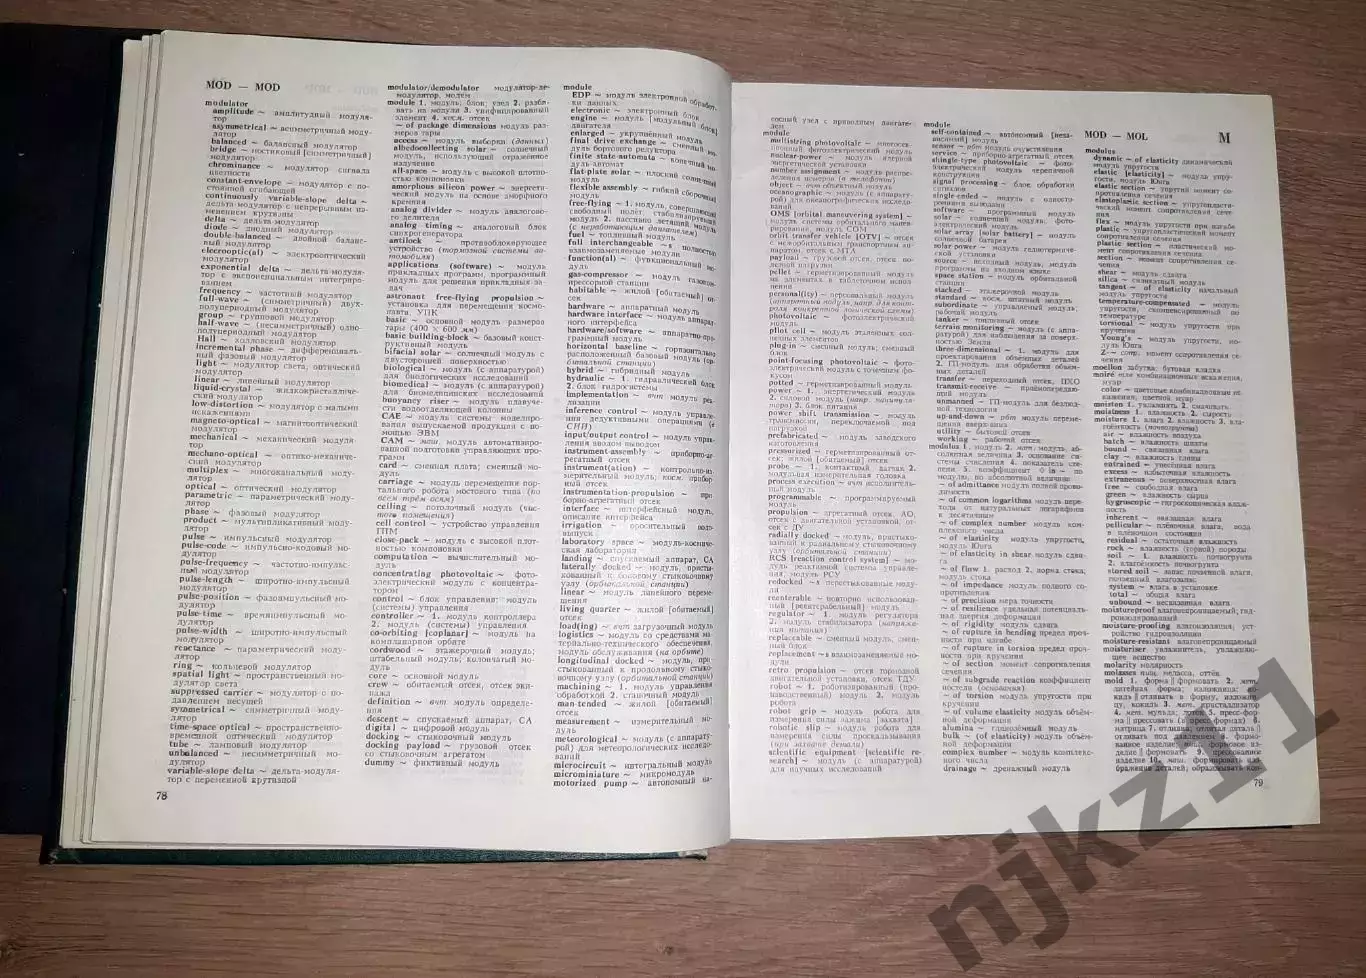 MOD — MOD
modulator
amplitude ~ амплитудный модуля-
тор
asymmetrical ~ асимметричный моду-
лятор
balanced ~ балансный модулятор
bridge ~ мостиковый [симметричный]
модулятор
chrominance ~ модулятор сигнала
цветности
constant-envelope ~ модулятор с по-
стоянной огибающей
continuously variable-slope delta ~
дельта-модулятор с непрерывным из-
менением крутизны
diode ~ диодный модулятор
double-balanced ~ двойной баланс-
ный модулятор
модулятор
exponential delta ~ дельта-модуля-
тор с экспоненциальным интегри-
рованием
frequency ~ частотный модулятор
full-wave ~ (симметричный) двух-
полупериодный модулятор
group ~ групповой модулятор
half-wave ~ (несимметричный) одно-
полупериодный модулятор
Hall ~ холловский модулятор
incremental phase ~ дифференциаль-
ный фазовый модулятор
light ~ модулятор света, оптический
модулятор
linear ~ линейный модулятор
liquid-crystal ~ жидкокристалличе-
ский модулятор
low-distortion ~ модулятор с малыми
искажениями
magneto-optical ~ магнитооптический
модулятор
mechanical ~ механический модуля-
тор
mechano-optical ~ оптико-механиче-
ский модулятор
multiplex ~ многоканальный моду-
лятор
optical ~ оптический модулятор
parametric ~ параметрический моду-
лятор
phase ~ фазовый модулятор
product ~ мультипликативный моду-
лятор
pulse ~ импульсный модулятор
pulse-code ~ импульсно-кодовый мо-
дулятор
pulse-frequency ~ частотно-импуль-
сный модулятор
pulse-length ~ широтно-импульсный
модулятор
pulse-position ~ фазоимпульсный мо-
дулятор
pulse-time ~ времяимпульсный мо-
дулятор
pulse-width ~ широтно-импульсный
модулятор
reactance ~ параметрический моду-
лятор
ring ~ кольцевой модулятор
spatial light ~ пространственный мо-
дулятор света
suppressed carrier ~ модулятор с по-
давлением несущей
symmetrical ~ симметричный моду-
лятор
time-space optical ~ пространственно-
временной оптический модулятор
tube ~ ламповый модулятор
unbalanced ~ несимметричный мо-
дулятор
variable-slope delta ~ дельта-модуля-
тор с переменной крутизной
78
modulator/demodulator модулятор-де-
модулятор, модем
module 1. модуль; блок; узел 2. разби-
вать на модули 3. унифицированный
элемент 4. косм. отсек
~ of package dimensions модуль раз-
меров тары
access ~ модуль выборки (данных)
albedocollecting solar ~ солнечный
модуль, использующий отражённое
излучение
all-space ~ модуль с высокой плотно-
стью компоновки
amorphous silicon power ~ энерге-
тический модуль на основе аморфного
кремния
analog divider ~ модуль аналогово-
го делителя
analog timing ~ аналоговый блок
синхрогенератора
antilock ~ противоблокирующее
устройство (тормозной системы ав-
томобиля)
applications (software) ~ модуль
прикладных программ, программный
модуль для решения прикладных за-
дач
astronaut free-flying propulsion ~
установка для перемещения космо-
навта, УПК
basic ~ основной модуль размеров
тары (400 × 600 мм)
basic building-block ~ базовый конст-
руктивный модуль
bifacial solar ~ солнечный модуль с
двусторонней поверхностью
biological ~ модуль (с аппаратурой)
для биологических исследований
biomedical ~ модуль (с аппаратурой)
для биомедицинских исследований
buoyancy riser ~ модуль плавуче-
сти водоотделяющей колонны
CAE ~ модуль системы моделиро-
вания выпускаемой продукции с по-
мощью ЭВМ
CAM ~ маш. модуль автоматизиро-
ванной подготовки управляющих про-
грамм
card ~ сменная плата; сменный мо-
дуль
carriage ~ модуль перемещения пор-
тального робота мостового типа (по
всем трём осям)
ceiling ~ потолочный модуль (чис-
того помещения)
cell control ~ устройство управления
ГПМ
close-pack ~ модуль с высокой плот-
ностью компоновки
computation ~ вычислительный мо-
дуль
concentrating photovoltaic ~ фото-
электрический модуль с концентра-
тором
control ~ блок управления; модуль
(системы) управления
controller ~ 1. модуль контроллера
2. модуль (системы) управления
co-orbiting [coplanar] ~ модуль на
компланарной орбите
cordwood ~ этажерочный модуль;
штабельный модуль; колончатый мо-
дуль
core ~ основной модуль
crew ~ обитаемый отсек, отсек эки-
пажа
definition ~ вчт модуль опреде-
ления
descent ~ спускаемый аппарат, СА
digital ~ цифровой модуль
docking ~ стыковочный модуль
docking payload ~ грузовой отсек
со стыковочным агрегатом
dummy ~ фиктивный модуль
module
EDP ~ модуль электронной обработ-
ки данных
electronic ~ электронный блок
engine ~ модуль [модульный блок]
двигателя
enlarged ~ укрупнённый модуль
final drive exchange ~ сменный мо-
дуль бортового редуктора
finite state-automata ~ конечный мо-
дуль-автомат
flat-plate solar ~ плоский солнечный
модуль
flexible assembly ~ гибкий сборочный
модуль
free-flying ~ 1. модуль, совершающий
свободный полёт; стабилизируемый
модуль 2. пассивно летящий модуль
(с неработающим двигателем)
fuel ~ топливный модуль
full interchangeable ~s полностью
взаимозаменяемые модули
function(al) ~ функциональный мо-
дуль
gas-compressor ~ модуль газоком-
прессорной станции
habitable ~ жилой [обитаемый] от-
сек
hardware ~ аппаратный модуль
hardware interface ~ модуль аппарат-
ного интерфейса
hardware/software ~ аппаратно-про-
граммный модуль
horizontal baseline ~ горизонтально
расположенный базовый модуль (ор-
битальной станции)
hybrid ~ гибридный модуль
hydraulic ~ 1. гидравлический блок
2. блок гидросистемы
implementation ~ вчт модуль реа-
лизации
inference control ~ модуль управле-
ния дедуктивными операциями (в
СИИ)
input/output control ~ модуль управ-
ления вводом-выводом
instrument-assembly ~ приборно-аг-
регатный отсек
instrument(ation) ~ контрольно-из-
мерительный модуль; косм. прибор-
ный отсек
instrumentation-propulsion ~ при-
борно-агрегатный отсек
interface ~ интерфейсный модуль,
описание интерфейса
irrigation ~ оросительный водо-
выпуск
laboratory space ~ модуль-косми-
ческая лаборатория
landing ~ спускаемый аппарат, СА
laterally docked ~ модуль, присты-
кованный к боковому стыковочному
узлу (орбитальной станции)
linear ~ модуль линейного переме-
щения
living quarter ~ жилой [обитаемый]
отсек
load(ing) ~ вчт загрузочный модуль
logistics ~ модуль со средствами ма-
териально-технического обеспечения,
модуль обслуживания (на орбите)
longitudinal docked ~ модуль, при-
стыкованный к продольному стыковочному
узлу (орбитальной станции)
machining ~ 1. модуль управления
обработкой 2. станочный модуль
man-tended ~ жилой [обитаемый]
отсек
measurement ~ измерительный мо-
дуль
meteorological ~ модуль (с аппарату-
рой) для метеорологических исследо-
ваний
microcircuit ~ интегральный модуль
microminiature ~ микромодуль
motorized pump ~ автономный на-
сосный узел с приводным двигате-
лем
module
multistring photovoltaic ~ многосек-
ционный фотоэлектрический модуль
nuclear-power ~ модуль ядерной
энергетической установки
number assignment ~ модуль распре-
деления номеров (в телефонии)
object ~ вчт объектный модуль
oceanographic ~ модуль (с аппарату-
рой) для океанографических исследо-
ваний
OMS [orbital maneuvering system] ~
модуль системы орбитального манев-
рирования, модуль СОМ
orbit transfer vehicle [OTV] ~ отсек
с межорбитальным транспортным ап-
паратом, отсек с МТА
payload ~ грузовой отсек, отсек по-
лезной нагрузки
pellet ~ герметизированный модуль
на элементах в таблеточном испол-
нении
personal(ity) ~ персональный модуль
photovoltaic ~ фотоэлектрический
модуль
pilot cell ~ модуль эталонных сол-
нечных элементов
plug-in ~ съёмный модуль; сменный
блок
point-focusing photovoltaic ~ фото-
электрический модуль с точечным фо-
кусом
potted ~ герметизированный модуль
power ~ 1. энергетический модуль
power shift transmission ~ модуль
трансмиссии, переключаемой под
нагрузкой
prefabricated ~ модуль заводского
изготовления
pressurized ~ герметизированный от-
сек; жилой [обитаемый] отсек
probe ~ 1. контактный датчик 2.
модульная измерительная головка
process execution ~ вчт исполни-
тельный модуль
programmable ~ программируемый
модуль
propulsion ~ агрегатный отсек, АО,
отсек с двигательной установкой, от-
сек с ДУ
radially docked ~ модуль, пристыко-
ванный к радиальному стыковочному
узлу (орбитальной станции)
RCS [reaction control system] ~ мо-
дуль реактивной системы управле-
ния, модуль РСУ
redocked ~ перестыкованный моду-
ль
reenterable ~ повторно использу-
емый [реентерабельный] модуль
regulator ~ 1. модуль регулятора
2. модуль стабилизатора (напряже-
ния питания)
replaceable ~ сменный модуль, смен-
ный блок
replacement ~s взаимозаменяемые мо-
дули
retro propulsion ~ отсек тормозной
двигательной установки, отсек ТДУ
robot ~ 1. роботизированный (про-
изводственный) модуль 2. модуль
робота
robot grip ~ модуль робота для
измерения силы зажима [захвата]
robotic slip ~ модуль робота для
измерения силы проскальзывания
(при захвате детали)
scientific equipment [scientific re-
search] ~ модуль (с аппаратурой)
для научных исследований
module
self-contained ~ автономный [неза-
висимый] модуль
sensor ~ рбт модуль очувствления
service ~ приборно-агрегатный отсек
shingle-type photovoltaic ~ фото-
электрический модуль черепичной
конструкции
signal processing ~ блок обработки
сигналов
single-ended ~ модуль с односто-
ронними выводами
software ~ программный модуль
solar ~ солнечный модуль, фото-
электрический модуль
solar array [solar battery] ~ модуль
солнечной батареи
solar power ~ модуль гелиотермиче-
ской установки
source ~ исходный модуль, модуль
программы на входном языке
space station ~ модуль орбитальной
станции
stacked ~ этажерочный модуль
standard ~ косм. штатный модуль
subordinate ~ управляемый модуль;
рабочий модуль
tanker ~ топливный отсек
terrain monitoring ~ модуль (с аппа-
ратурой) для наблюдения за поверхно-
стью Земли
three-dimensional ~ 1. модуль для
проектирования объёмных деталей
2. ГП-модуль для обработки объём-
ных деталей
transfer ~ переходный отсек, ПХО
transmit-receive ~ приёмопередаю-
щий модуль
unmanned ~ ГП-модуль для безлюд-
ной технологии
up-and-down ~ рбт модуль переме-
щения вверх-вниз
utility ~ бытовой отсек
working ~ рабочий отсек
modulus 1. модуль 2. мат. модуль, аб-
солютная величина 3. основание си-
стемы счисления 4. показатель степе-
ни 5. коэффициент ◊ in ~ по
модулю, по абсолютной величине
~ of admittance модуль полной прово-
димости
~ of common logarithms модуль пере-
хода от натуральных логарифмов
к десятичным
~ of complex number модуль ком-
плексного числа
~ of elasticity модуль упругости,
модуль Юнга
~ of elasticity in shear модуль сдви-
га
~ of flow 1. расход 2. норма стока;
модуль стока
~ of impedance модуль полного со-
противления
~ of precision мера точности
~ of resilience удельная потенциаль-
ная энергия деформации
~ of rigidity модуль сдвига
~ of rupture in bending предел проч-
ности при изгибе
~ of rupture in torsion предел проч-
ности при кручении
~ of section момент сопротивления
сечения
~ of subgrade reaction коэффициент
постели (основания)
~ of torsion модуль упругости при
кручении
~ of volume elasticity модуль объём-
ной деформации
alumina ~ глинозёмный модуль
bulk ~ (of elasticity) модуль объём-
ной деформации
complex number ~ модуль комплекс-
ного числа
drainage ~ дренажный модуль
MOD — MOL
M
modulus
dynamic ~ of elasticity динамический
модуль упругости
elastic [elasticity] ~ модуль упру-
гости, модуль Юнга
elastic section ~ упругий момент со-
противления сечения
elastoplastic section ~ упругопласти-
ческий момент сопротивления сече-
ния
flex ~ модуль упругости при изгибе
plastic ~
plastic section ~ пластический мо-
мент сопротивления сечения
section ~ момент сопротивления се-
чения
shear ~ модуль сдвига
silica ~ силикатный модуль
tangent ~ of elasticity начальный
модуль упругости
temperature-compensated ~ модуль
упругости, скомпенсированный по
температуре
torsional ~ модуль упругости при
кручении
Young's ~ модуль упругости, мо-
дуль Юнга
Z-~ стр. момент сопротивления
сечения
moellon забутка; бутовая кладка
moiré муар
color ~ цветовые комбинационные ис-
кажения, цветной муар
moisten 1. увлажнять 2. смачивать
moistness 1. влажность 2. сырость
moisture 1. влага 2. влажность 3. вла-
гоёмкость (почвогрунта)
air ~ влажность воздуха
batch ~ влажность шихты
bound ~ связанная влага
clay ~ влажность глины
entrained ~ унесённая влага
excess ~ избыточная влажность
extraneous ~ поверхностная влага
free ~ свободная влага
green ~ влажность сырца
hygroscopic ~ гигроскопическая влаж-
ность
inherent ~ связанная влага
pellicular ~ плёночная влага, вода
в плёночном состоянии
residual ~ остаточная влажность
rock ~ влажность (горной) породы
soil ~ 1. влажность почвогрунта
2. влагоёмкость почвогрунта
stored soil ~ запас почвенной влаги,
почвенный влагозапас
system ~ влага в установке
total ~ общая влага
unbound ~ несвязанная влага
moistureproof влагонепроницаемый, гид-
роизолированный
moisture-proofing влагоизоляция; уст-
ройство гидроизоляции
moisture-resistant влагонепроницаемый
moisturizer увлажнитель, увлажняю-
щее вещество
molarity молярность
molasses пищ. меласса, оттёк
mold 1. форма || формовать 2. мет.
литейная форма; изложница;
79
njkz11